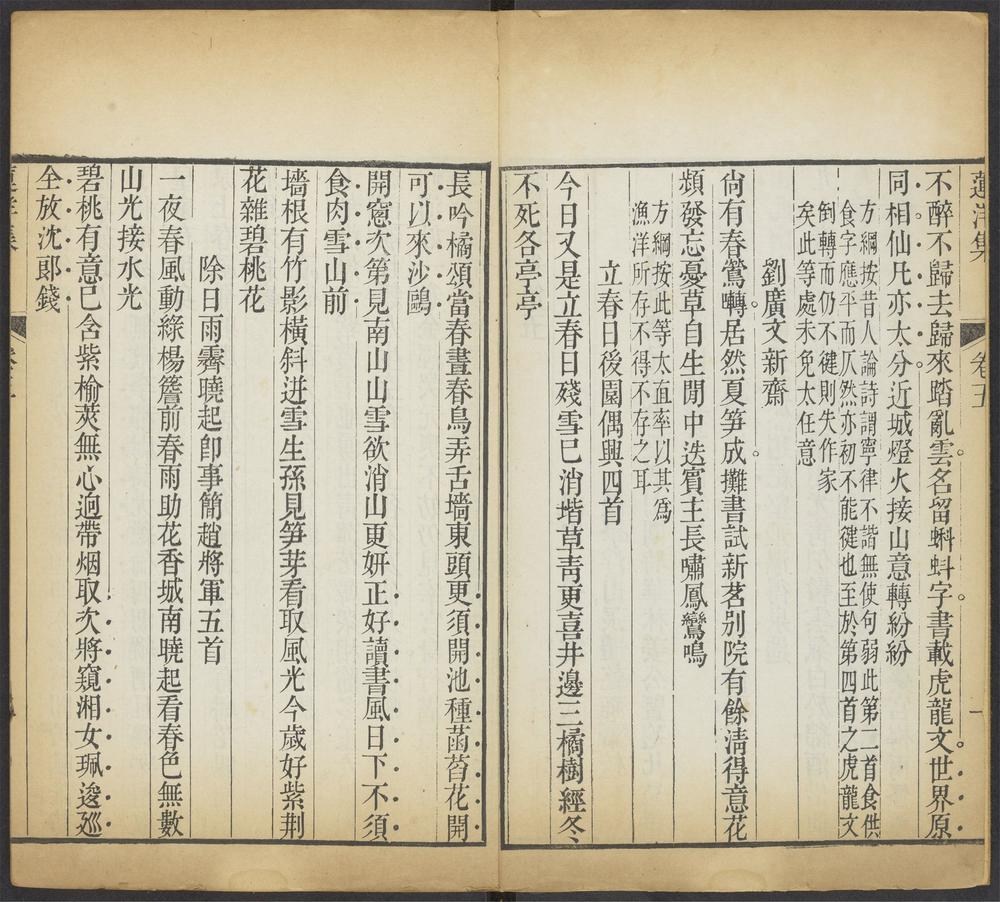 蓮洋集
卷五
一
不醉不歸去歸來踏亂雲名留蝌蚪字書載虎龍文世界原
同相仙凡亦太分近城燈火接山意轉紛紛
方綱按昔人論詩謂寧律不諧無使句弱此第二首食供
食字應平而仄然亦初不能健也至於第四首之虎龍文
倒轉而仍不健則失作家
矣此等處未免太任意
劉廣文新齋
尙有春鶯囀居然夏笋成攤書試新茗别院有餘淸得意花
頻發忘憂草自生閒中迭賓主長嘯鳳鸞鳴
方綱按此等太直率以其爲
漁洋所存不得不存之耳
立春日後園偶興四首
今日又是立春日殘雪已消堦草靑更喜井邊三橘樹經冬
不死各亭亭
長吟橘頌當春晝春鳥弄舌墻東頭更須開池種菡萏花開
可以來沙鷗
開窻次第見南山山雪欲消山更妍正好讀書風日下不須
食肉雪山前
墻根有竹影橫斜迸雪生孫見笋芽看取風光今歲好紫荆
花雜碧桃花
除日雨霽曉起卽事簡趙將軍五首
一夜春風動綠楊簷前春雨助花香城南曉起看春色無數
山光接水光
碧桃有意已含紫榆莢無心逈帶烟取次將窺湘女珮逡廵
全放沈郞錢